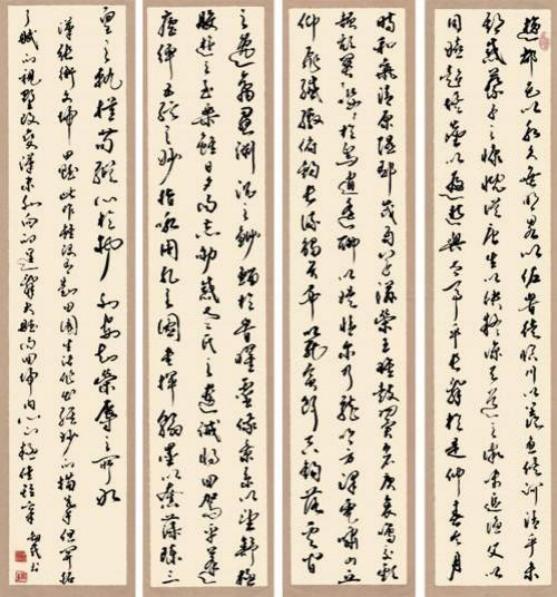 遊都邑以永久無明略以佐時徒臨川以羨魚俟河清乎未
期感蔡子之慷慨從唐生以決疑諒天道之微昧追漁父以
同嬉超埃塵以遐逝與世事乎長辭於是仲春令月
時和氣清原隰鬱茂百草滋榮王雎鼓翼倉庚哀鳴交頸
頡頏關關嚶嚶於焉逍遙聊以娛情爾乃龍吟方澤虎嘯山丘
仰飛纖繳俯釣長流觸矢而斃貪餌吞鉤落雲間
之逸禽懸淵沉之魦鰡於時曜靈俄景系以望舒極
般遊之至樂雖日夕而忘劬感老氏之遺誡將回駕乎蓬
廬彈五絃之妙指詠周孔之圖書揮翰墨以奮藻陳三
皇之軌模苟縱心於物外安知榮辱之所如
漢張衡文歸田賦此作 對田園生活 描 開拓
了賦的視野 漢末 的 大賦向